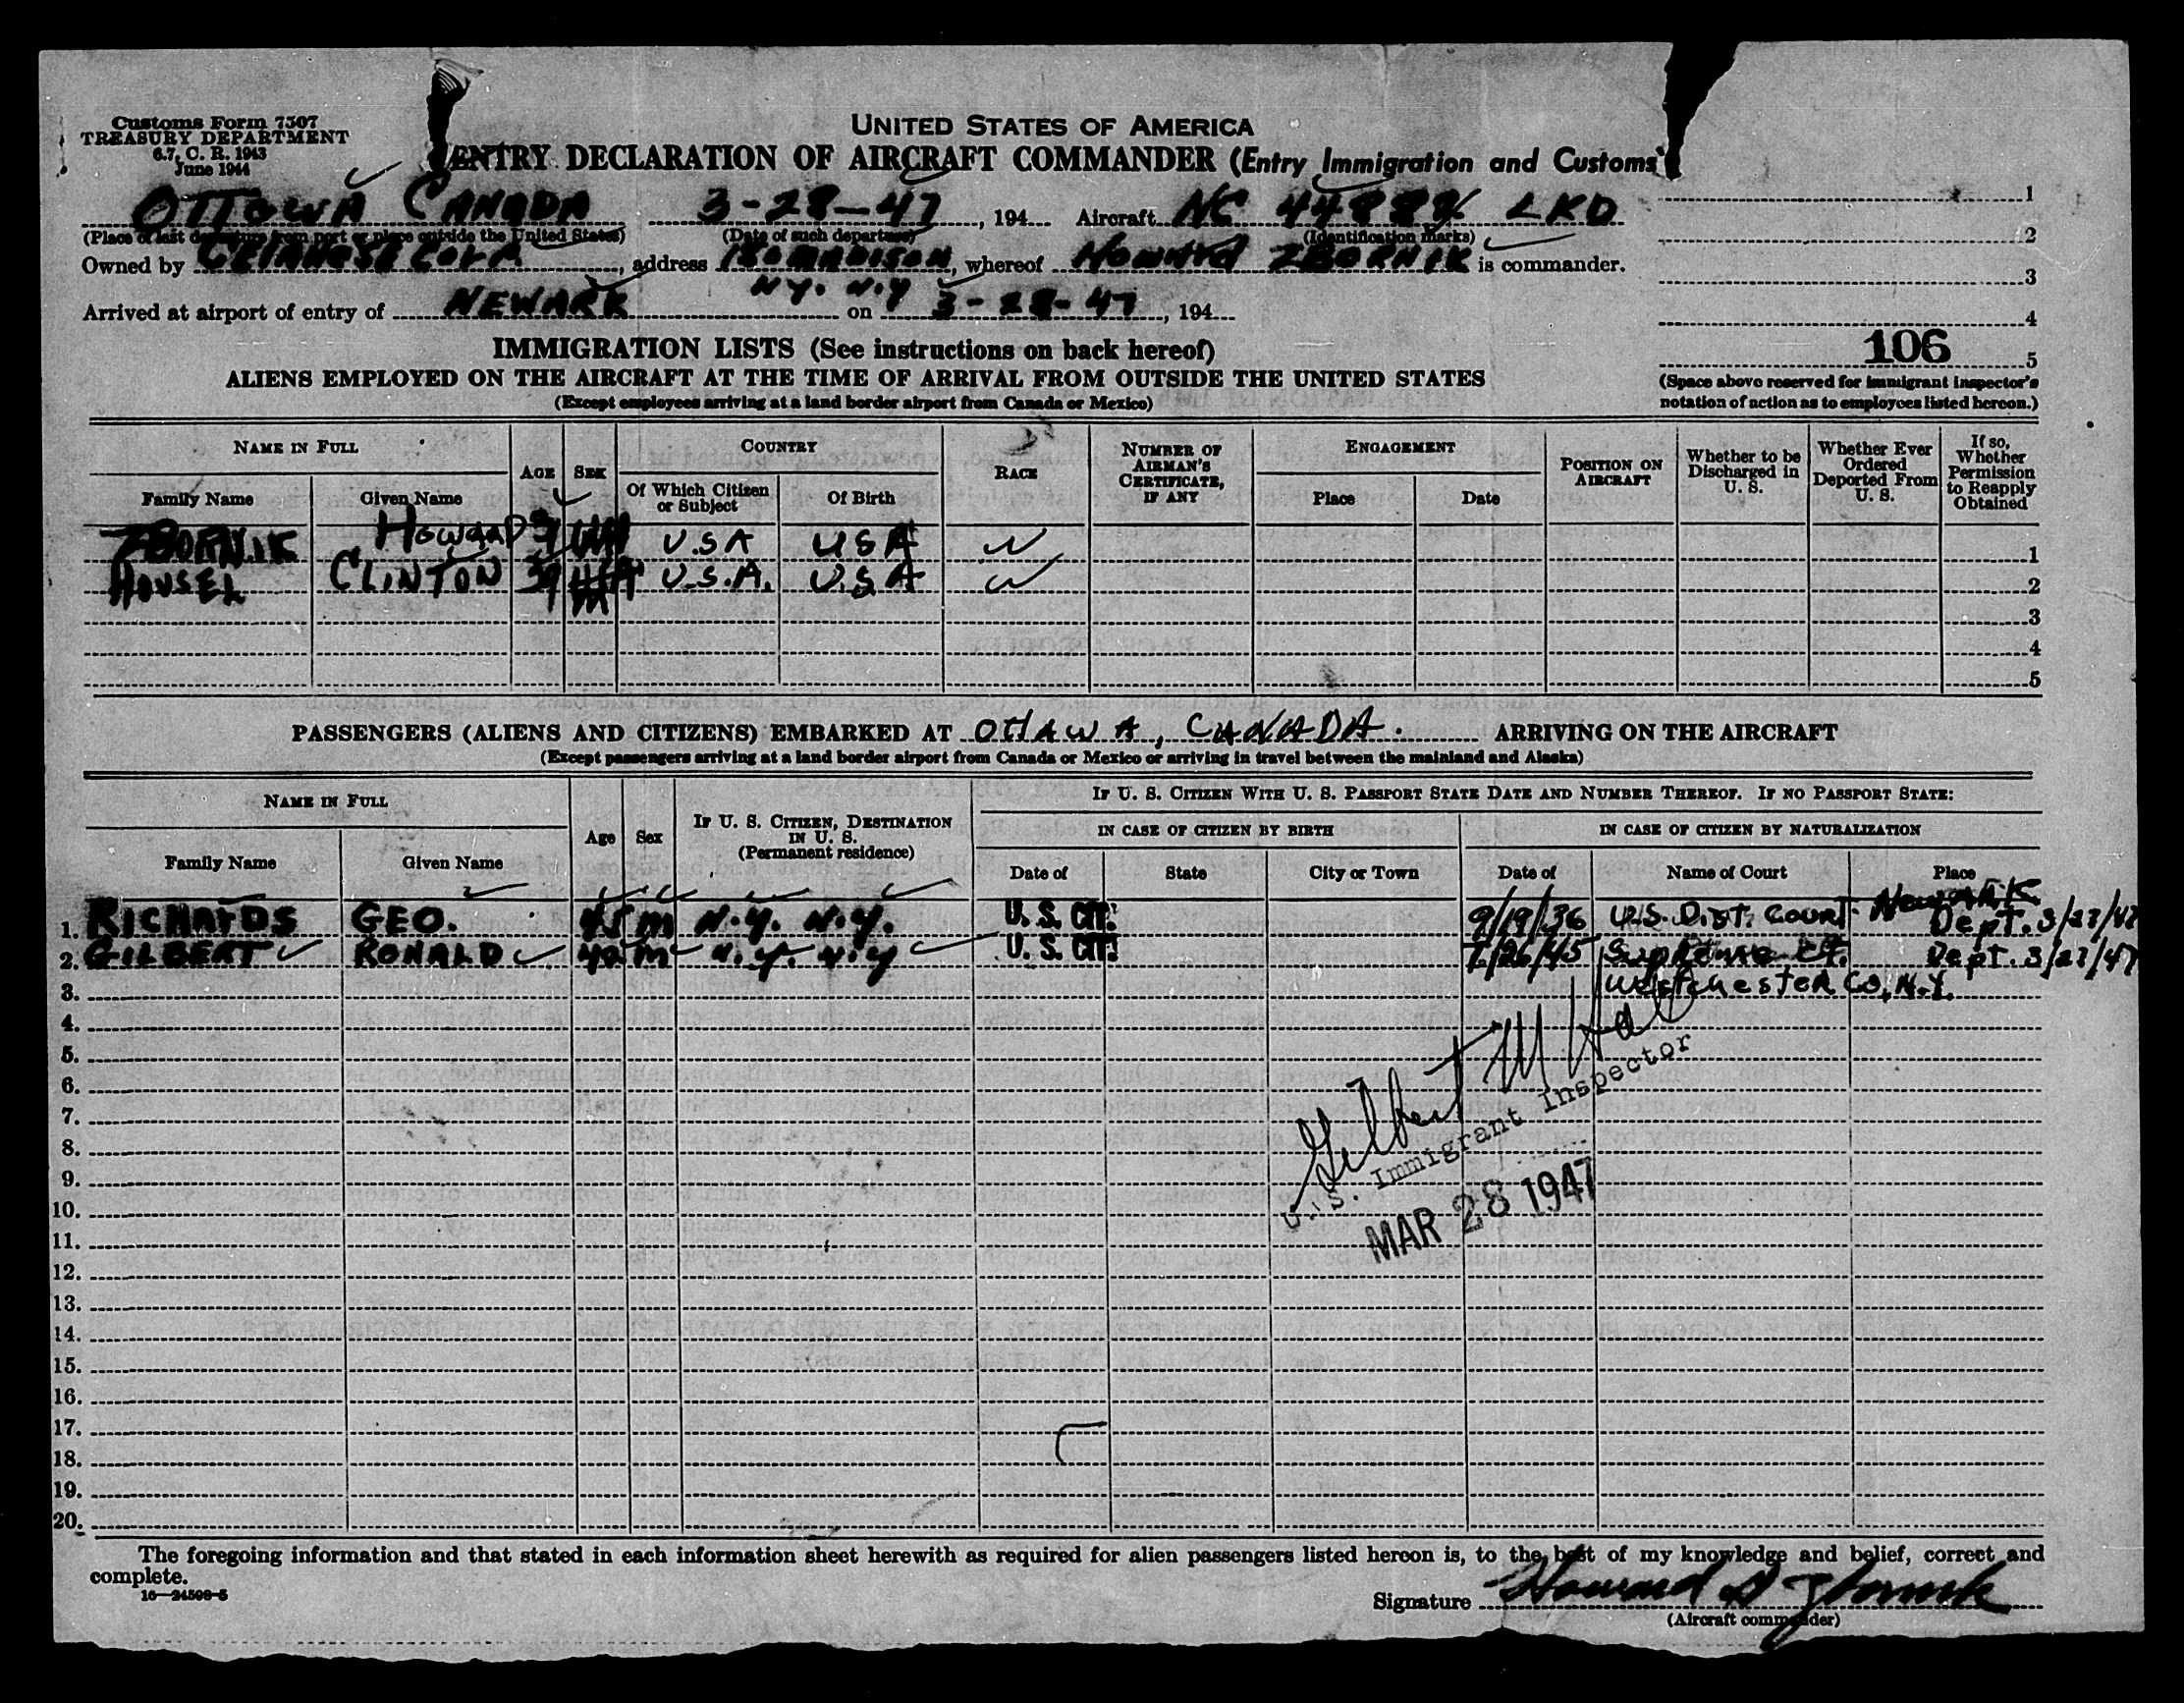 Customs Form 7507
TREASURY DEPARTMENT
6.7, C. R. 1943
June 1944
UNITED STATES OF AMERICA
ENTRY DECLARATION OF AIRCRAFT COMMANDER (Entry Immigration and Customs)
OTTOWA CANADA 3-28-47, 194 Aircraft NC LKD
(Place of last departure from port or place outside the United States) (Date of such departure) (Identification marks)
Owned by CORP, address MADISON, whereof HOWARD ZBORNIK is commander.
N.Y. N.Y
Arrived at airport of entry of NEWARK on 3-28-47, 194
1
2
3
4
106 5
(Space above reserved for immigrant inspector's
notation of action as to employees listed hereon.)
IMMIGRATION LISTS (See instructions on back hereof)
ALIENS EMPLOYED ON THE AIRCRAFT AT THE TIME OF ARRIVAL FROM OUTSIDE THE UNITED STATES
(Except employees arriving at a land border airport from Canada or Mexico)
NAME IN FULL AGE SEX COUNTRY RACE NUMBER OF AIRMAN'S CERTIFICATE, IF ANY ENGAGEMENT POSITION ON AIRCRAFT Whether to be Discharged in U. S. Whether Ever Ordered Deported From U. S. If so, Whether Permission to Reapply Obtained
Family Name Given Name Of Which Citizen or Subject Of Birth Place Date
ZBORNIK HOWARD U.S.A USA W 1
HOUSEL CLINTON 39 U.S.A. U.S.A W 2
3
4
5
PASSENGERS (ALIENS AND CITIZENS) EMBARKED AT OttAWA, CANADA. ARRIVING ON THE AIRCRAFT
(Except passengers arriving at a land border airport from Canada or Mexico or arriving in travel between the mainland and Alaska)
NAME IN FULL Age Sex IF U. S. CITIZEN, DESTINATION IN U. S. (Permanent residence) IF U. S. CITIZEN WITH U. S. PASSPORT STATE DATE AND NUMBER THEREOF. IF NO PASSPORT STATE:
IN CASE OF CITIZEN BY BIRTH IN CASE OF CITIZEN BY NATURALIZATION
Family Name Given Name Date of State City or Town Date of Name of Court Place
1. RICHARDS GEO. 45 m N.Y. N.Y. U. S. CIT. 9/19/36 U.S. DIST. COURT. NEWARK Dept. 3/27/47
2. GILBERT RONALD 42 m N.Y. N.Y U. S. CIT. 7/26/45 Supreme Ct. Dept. 3/27/47
3. Westchester Co, N.Y.
4.
5.
6.
7.
8.
9.
10.
11.
12.
13.
14.
15.
16.
17.
18.
19.
20.
Gilbert M Hall
U.S. Immigrant Inspector
MAR 28 1947
The foregoing information and that stated in each information sheet herewith as required for alien passengers listed hereon is, to the best of my knowledge and belief, correct and
complete.
16—24598-5
Signature Howard A Zbornik
(Aircraft commander)